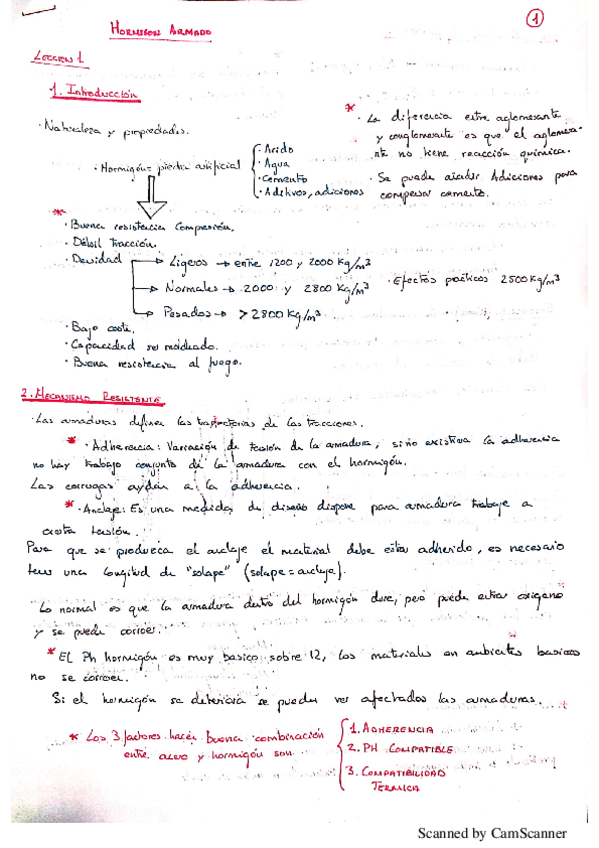 1
HORMIGON ARMADO
LECCION 1
1. Introducción
· Naturaleza y propiedades.
· Hormigón = piedra artificial
· Arido
· Agua
· Cemento
· Aditivos, adiciones
* · La diferencia entre aglomerante
y conglomerante es que el aglomera-
nte no tiene reacción química.
· Se puede añadir Adiciones para
compensar cemento.
*
· Buena resistencia Compresión.
· Débil tracción.
· Densidad → Ligeros → entre 1200 y 2000 Kg/m³
→ Normales → 2000 y 2800 Kg/m³
→ Pesados → > 2800 Kg/m³
· Efectos prácticos 2500 Kg/m³
· Bajo coste.
· Capacidad ser moldeado.
· Buena resistencia al fuego.
2. MECANISMO RESISTENTE
· Las armaduras definen las trayectorias de las tracciones.
* · Adherencia: Variación de tensión de la armadura, si no existiera la adherencia
no hay trabajo conjunto de la armadura con el hormigón.
Las corrugas ayudan a la adherencia.
* · Anclaje: Es una medida de diseño dispone para armadura trabaje a
cierta tensión.
Para que se produzca el anclaje el material debe estar adherido, es necesario
tener una longitud de "solape" (solape = anclaje).
Lo normal es que la armadura dentro del hormigón dure, pero puede entrar oxigeno
y se puede corroer.
* EL Ph hormigón es muy basico sobre 12, los materiales en ambientes basicos
no se corroen.
Si el hormigón se deteriora se pueden ver afectados las armaduras.
* Los 3 factores hacen buena combinación
entre acero y hormigón son
1. ADHERENCIA
2. PH COMPATIBLE
3. COMPATIBILIDAD
TERMICA
Scanned by CamScanner